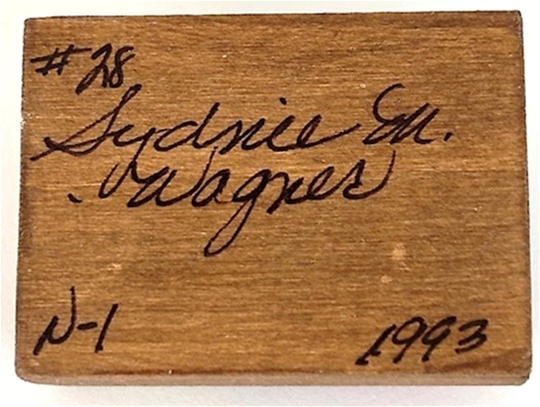 #28
Sydnie M.
Wagner
N-1 1993